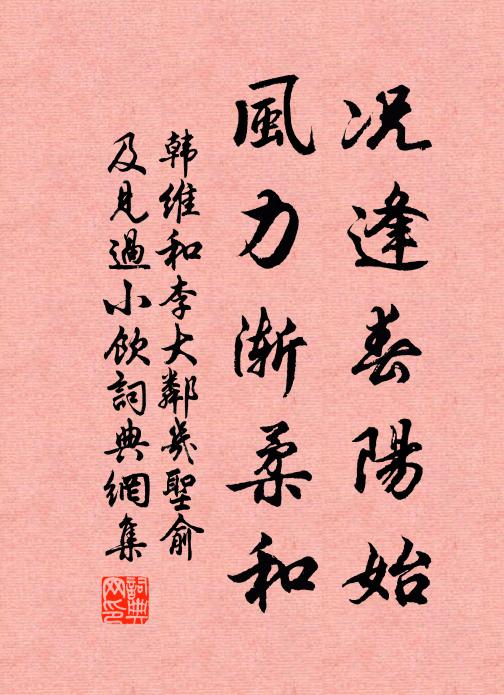 况逢春陽始
風力漸柔和
韩維和李大鄰幾聖俞
及見過小飲詞典網集
詞典
网印